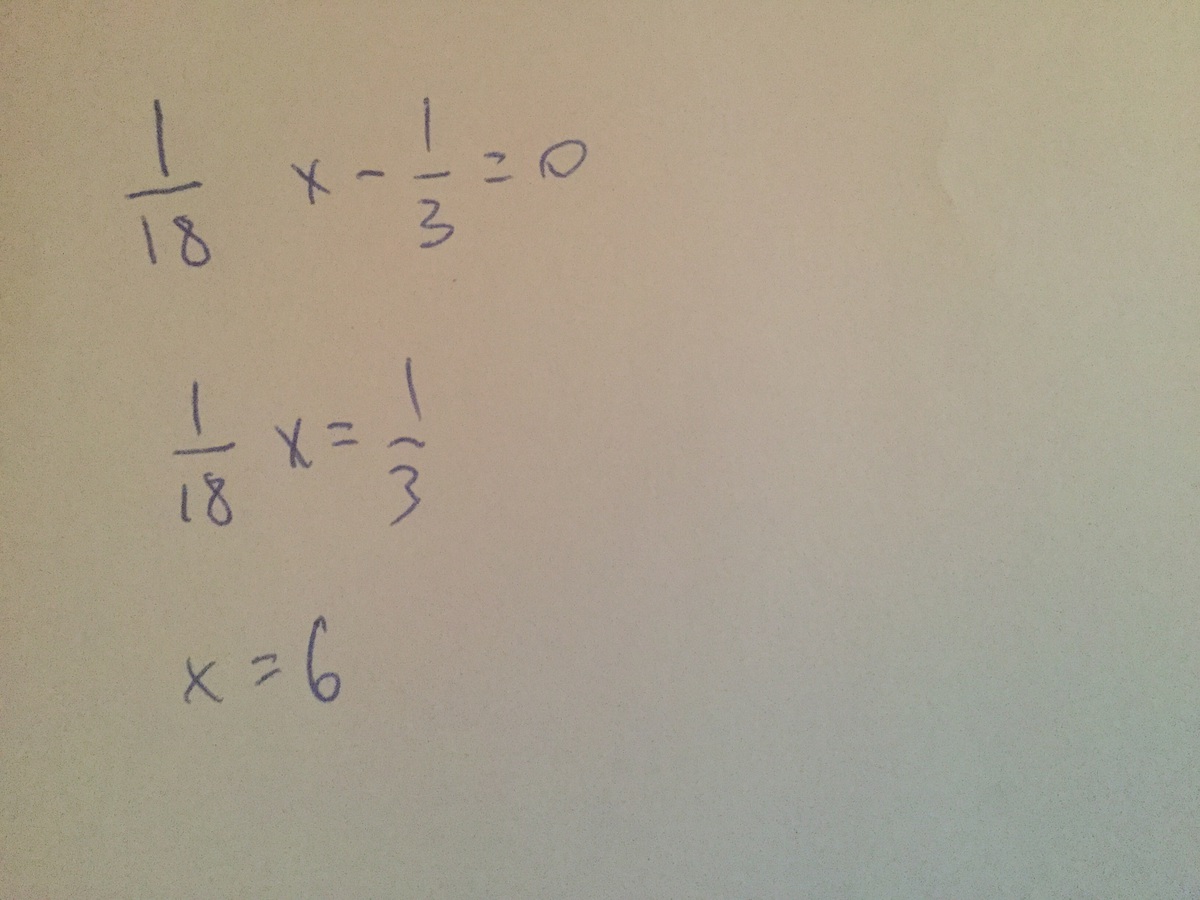 1/18 x - 1/3 = 0
1/18 x = 1/3
x = 6